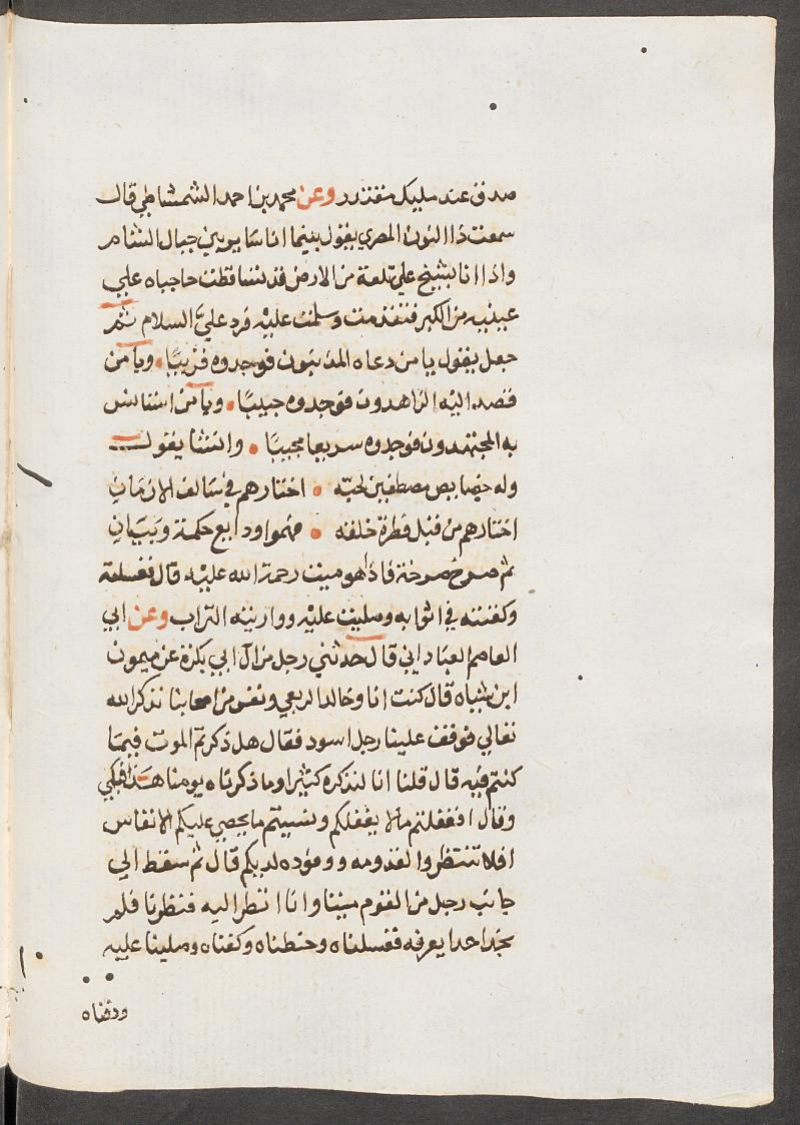 صدق عند مليك مقتدر وعن محمد بن احمد الشمشاطي قال
سمعت ذا النون المصري يقول بينما انا ساير بين جبال الشام
واذا انا بشيخ علي تلعة من الارض قد تساقطت حاجباه علي
عينيه من الكبر فتقدمت وسلمت عليه فرد علي السلام ثم
جعل يقول يا من دعاه المذنبون فوجدوه قريبًا ويا من
قصد اليه الزاهدون فوجدوه حبيبًا ويا من استانس
به المجتهدون فوجدوه سريعا مجيبًا وانشا يقول
وله خصايص مصطفين لحبه اختارهم في سالف الازمان
اختارهم من قبل فطرة خلقه فهموا ودايع حكمة وبيان
ثم صرخ صرخة فاذا هو ميت رحمة الله عليه قال فغسلته
وكفنته في اثوابه وصليت عليه وواريته التراب وعن ابي
العاصم العباداني قال حدثني رجل من آل ابي بكرة عن ميمون
ابن شباه قال كنت انا وخالد الربعي ونفر من اصحابنا نذكر الله
تعالي فوقف علينا رجل اسود فقال هل ذكرتم الموت فيما
كنتم فيه قال قلنا انا لنذكره كثيرا وما ذكرناه يومنا هذا فبكي
وقال اففغلتم مالا يغفلكم ونسيتم ما يحصي عليكم الانفاس
افلا تنتظروا لقدومه ووفوده لديكم قال ثم سقط الي
جانب رجل من القوم ميتا وانا انظر اليه فنظرنا فلم
نجد احدا يعرفه فغسلناه وحنطناه وكفناه وصلينا عليه
ودفناه